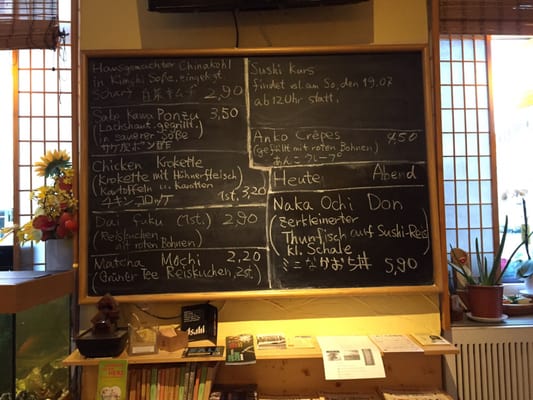 Hausgemachter Chinakohl
in Kimchi Soße, eingelegt
Scharf 白菜キムチ 2,90
Sake Kawa Ponzu 3,50
(Lachshaut, gegrillt
in saverer Soße)
サケ皮ポン酢
Chicken Krokette
(Krokette mit Hühnerfleisch
Kartoffeln u. Karotten)
チキンコロッケ 1st. 3,20
Dai fuku (1st.) 2,90
(Reiskuchen
mit roten Bohnen)
Matcha Mochi 2,20
(Grüner Tee Reiskuchen, 2st.)
Sushi Kurs
findet am So, den 19.07
ab 12 Uhr statt.
Anko Crêpes 4,50
(gefüllt mit roten Bohnen)
あんこクレープ
Heute Abend
Naka Ochi Don
(zerkleinerter
Thunfisch auf Sushi-Reis
kl. Schale)
ミニなかおち丼 5,90
Asahi